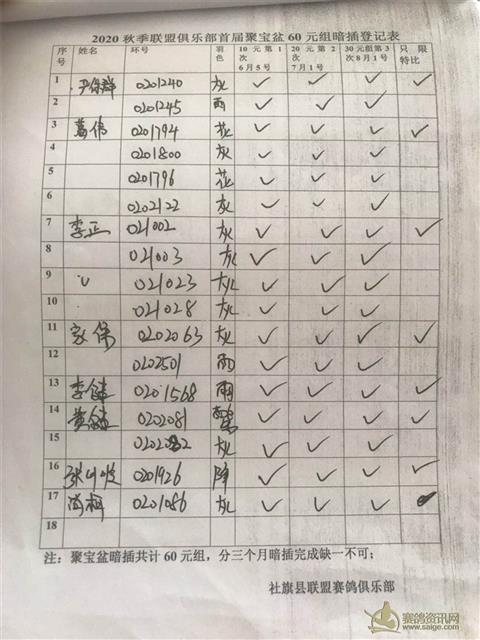 2020 秋季联盟俱乐部首届聚宝盆 60 元组暗插登记表
序号 姓名 环号 羽色 10 元第 1 次 6月5号 20 元第 2 次 7月1号 30元组第3次8月1号 只限特比
1 尹保群 0201240 灰 ✓ ✓ ✓ ✓
2 0201245 雨 ✓ ✓ ✓
3 葛伟 0201794 花 ✓ ✓ ✓ ✓
4 0201800 灰 ✓ ✓ ✓
5 0201796 花 ✓ ✓ ✓
6 0202122 灰 ✓ ✓ ✓
7 李正 021002 灰 ✓ ✓ ✓ ✓
8 021003 灰 ✓ ✓ ✓
9 021023 灰 ✓ ✓ ✓
10 021028 灰 ✓ ✓ ✓
11 家保 0202063 灰 ✓ ✓ ✓ ✓
12 0202501 雨 ✓ ✓ ✓
13 李健 0201568 雨 ✓ ✓ ✓ ✓
14 黄 0202081 ✓ ✓ ✓ ✓
15 灰 ✓ ✓ ✓
16 张 0201926 降 ✓ ✓ ✓ ✓
17 0201086 灰 ✓ ✓ ✓
18
注：聚宝盆暗插共计 60 元组，分三个月暗插完成缺一不可；
社旗县联盟赛鸽俱乐部
赛鸽资讯网
www.saige.com